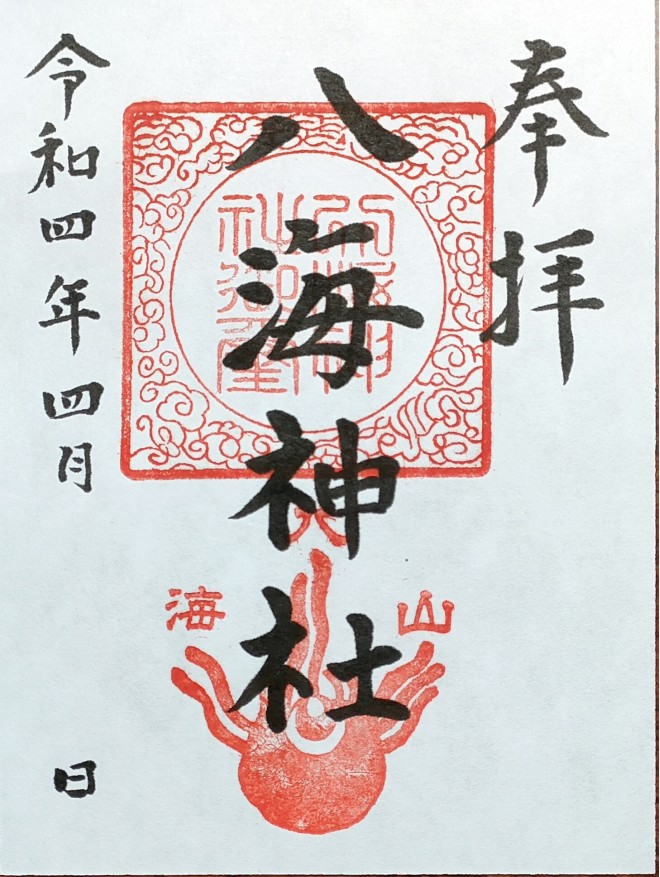 奉拝
八海神社
令和四年四月 日
八
海
山